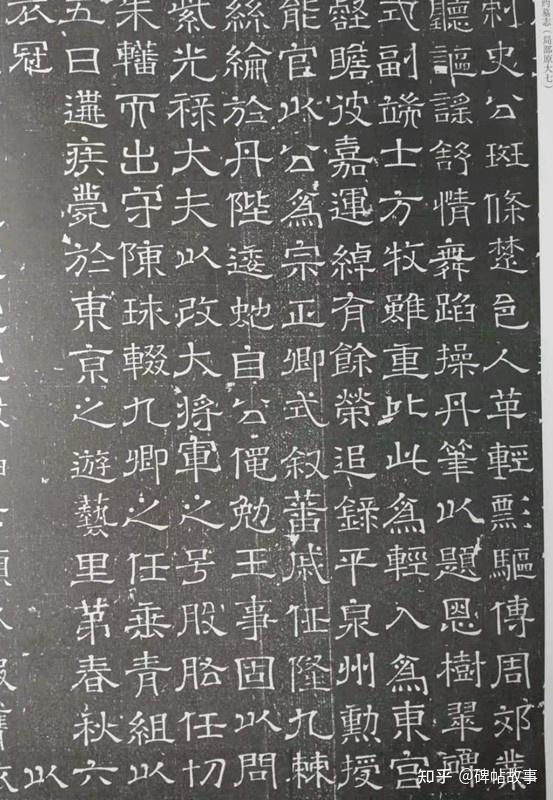 约墓志（局部原大七）
刺史公斑條楚邑人革輕剽驅傳周郊業
聽謳謠舒情舞蹈操丹筆以題恩樹翠碑
式副端士方牧雖重比此爲輕入爲東宮
瞻彼嘉運綽有餘榮追錄平泉州勳授
能官以公爲宗正卿式叙蕃戚任隆九棘
絲綸於丹陛逶虵自公僶勉王事固以問
紫光祿大夫以改大將軍之号股肱任切
朱轓而出守陳球輟九卿之任垂青組以
五日遘疾薨於東京之遊藝里第春秋六
衣冠
以
知乎 @碑帖故事